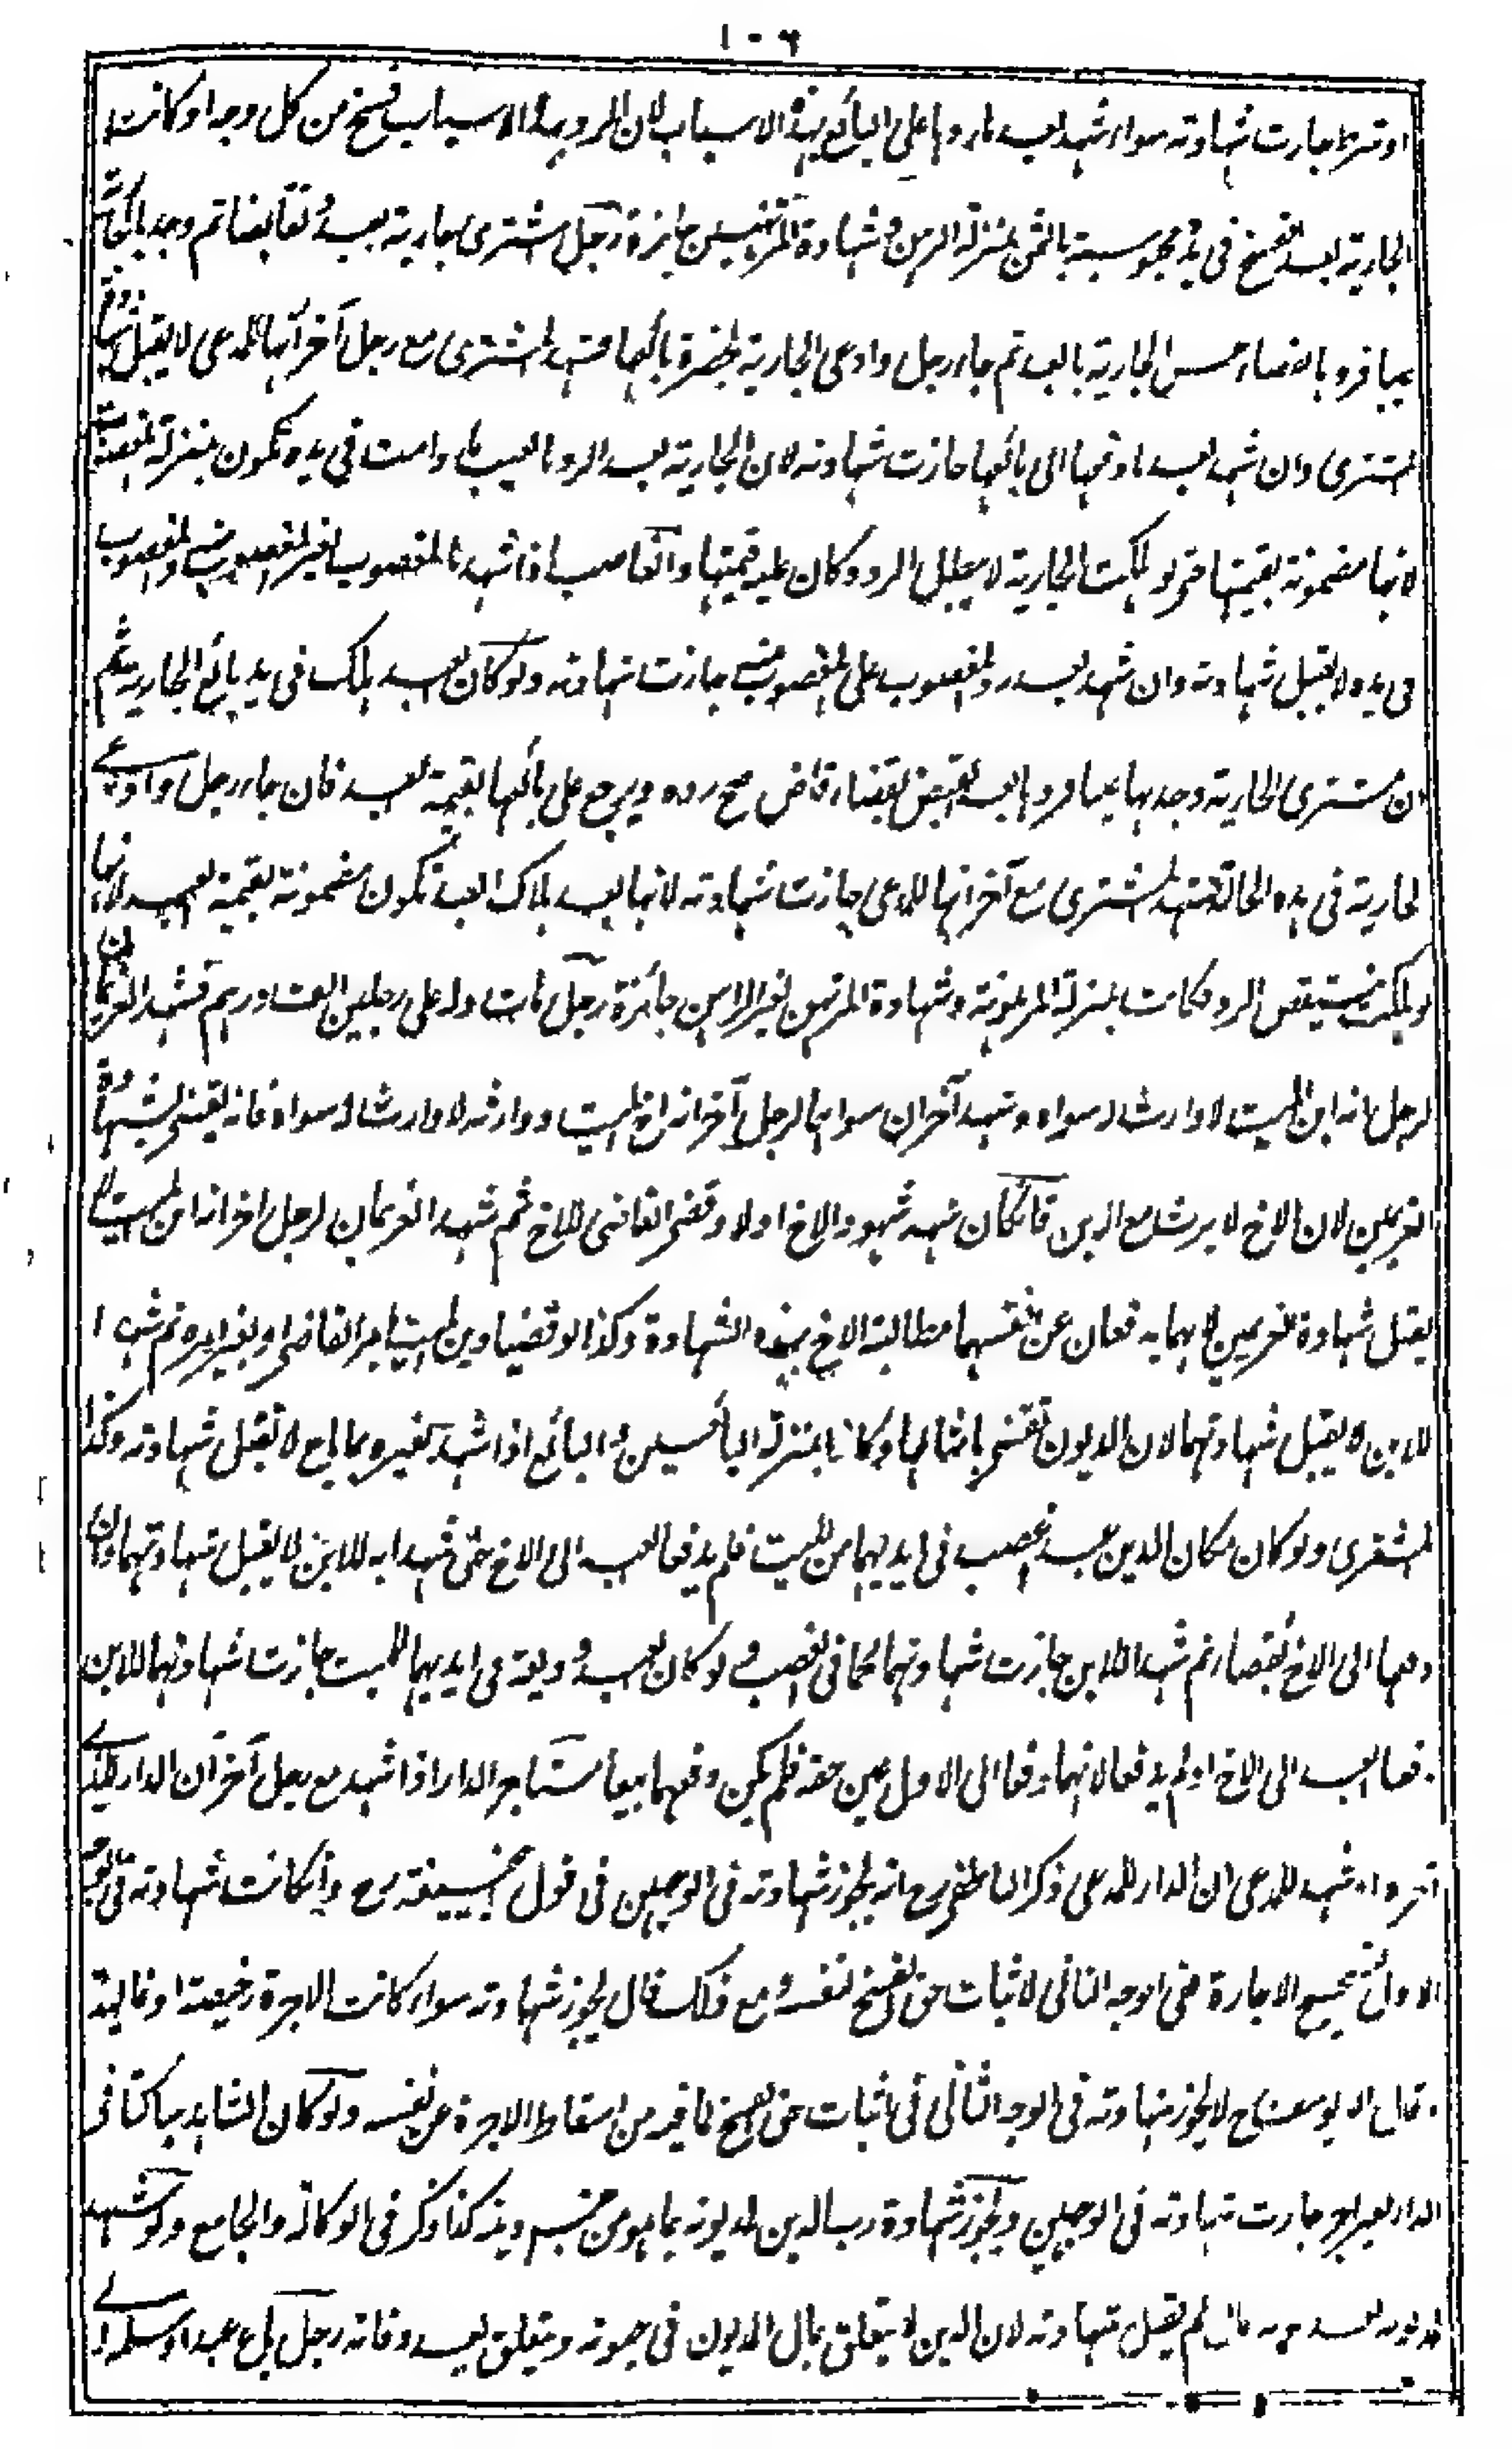 ١٠٦
جازت شهادته سواء شهد بعد ما ردها على البائع بهذه الاسباب لان الرد بهذه الاسباب فسخ من كل وجه او كانت
الجارية بعد الفسخ فى يده محبوسة بالثمن بمنزلة الرهن و شهادة المرتهنين جايزة رجل اشترى جارية بعبد و تقابضا ثم وجد بالجارية
عيبا فردها بالقضاء حبس الجارية بالعبد ثم جاء رجل وادعى الجارية بحضرة بائعها فشهد المشترى مع رجل آخر انها للمدعى لا يقبل شهادة
المشترى وان شهد بعد ما دفعها الى بائعها جازت شهادته لان الجارية بعد الرد بالعيب ما دامت فى يده تكون بمنزلة المغصوب
لانها مضمونة بقيمتها حتى لو هلكت الجارية لا يبطل الرد و كان عليه قيمتها والغاصب اذا شهد بالمغصوب لغير المغصوب منه والمغصوب
فى يده لا يقبل شهادته وان شهد بعد رد المغصوب على المغصوب منه جازت شهادته ولو كان العبد هلك فى يد بائع الجارية ثم
ان مشترى الجارية وجد بها عيبا فردها بعد القبض بقضاء قاض صح رده ويرجع على بائعها بقيمة العبد فان جاء رجل وادعى
الجارية فى هذه الحالة فشهد المشترى مع آخر انها للمدعى جازت شهادته لانها بعد هلاك العبد تكون مضمونة بقيمة العبد لانها
لو هلكت ينتقض الرد فكانت بمنزلة المرهونة وشهادة المرتهن لغير الراهن جائزة رجل مات وله على رجلين الف درهم فشهد الغريمان
لرجل انه ابن الميت لا وارث له سواه وشهد آخران سواهما لرجل آخر انه اخ الميت ووارثه لا وارث له سواه فانه يقضى بشهادة
الغريمين لان الاخ لا يرث مع الابن فان كان شهد شهود الاخ اولا وقضى القاضى للاخ ثم شهد الغريمان لرجل اخر انه ابن الميت لا
يقبل شهادة الغريمين لانهما يدفعان عن نفسهما مطالبة الاخ بهذه الشهادة وكذا لو قضيا دين الميت بامر القاضى او بغير امره ثم شهدا
للابن لا يقبل شهادتهما لان الديون تقضى بامثالها وكانا بمنزلة البائعين و البائع اذا شهد لغيره بما باع لا تقبل شهادته وكذا
المشترى ولو كان مكان الدين عبد غصب فى ايديهما من الميت فلم يدفعا العبد الى الاخ حتى شهدا به للابن لا يقبل شهادتهما وان
دفعا الى الاخ بقضاء ثم شهدا للابن جازت شهادتهما كما فى الغصب ولو كان العبد وديعة فى ايديهما للميت جازت شهادتهما للابن
دفعا العبد الى الاخ او لم يدفعا لانهما دفعا الى الاول عين حقه فلم يكن دفعهما بيعا مستاجر الدار اذا شهد مع رجل آخر ان الدار
شهد للمدعى ان الدار للمدعى ذكر الناطفى رح انه يجوز شهادته فى الوجهين فى قول ابى حنيفة رح وان كانت شهادته فى
الاول تصحيح الاجارة وفى الوجه الثانى لاثبات حق الفسخ لنفسه و مع ذلك قال يجوز شهادته سواء كانت الاجرة رخيصة او غالية
وقال ابو يوسف رح لا يجوز شهادته فى الوجه الثانى فى اثبات حق الفسخ لما فيه من اسقاط الاجرة عن نفسه ولو كان الشاهد ساكنا فى
الدار بغير اجر جازت شهادته فى الوجهين ويجوز شهادة رب الدين لمديونه بما هو من جنس دينه كذا ذكر فى الوكالة والجامع ولو شهد
لمديونه بعد موته بمال لم يقبل شهادته لان الدين لا يتعلق بمال المديون فى حيوته ويتعلق بعد وفاته رجل باع عبدا وسلمه